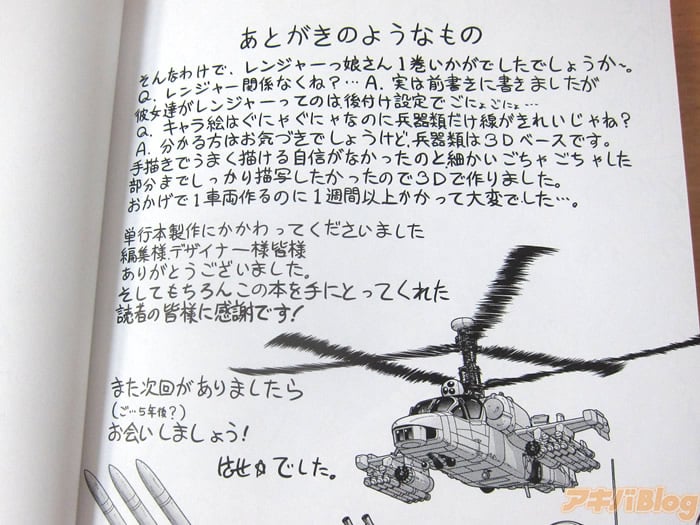 あとがきのようなもの
そんなわけで、レンジャーっ娘さん1巻いかがでしたでしょうか〜。
Q. レンジャー関係なくね?…A. 実は前書きに書きましたが
彼女達がレンジャーってのは後付け設定でごにょごにょ…
Q. キャラ絵はぐにゃぐにゃなのに兵器類だけ線がきれいじゃね?
A. 分かる方はお気づきでしょうけど、兵器類は3Dベースです。
手描きでうまく描ける自信がなかったのと細かいごちゃごちゃした
部分までしっかり描写したかったので3Dで作りました。
おかげで1車両作るのに1週間以上かかって大変でした…。
単行本製作にかかわってくださいました
編集様、デザイナー様皆様
ありがとうございました。
そしてもちろんこの本を手にとってくれた
読者の皆様に感謝です!
また次回がありましたら
(ご…5年後?)
お会いしましょう!
でした。
アキバBlog